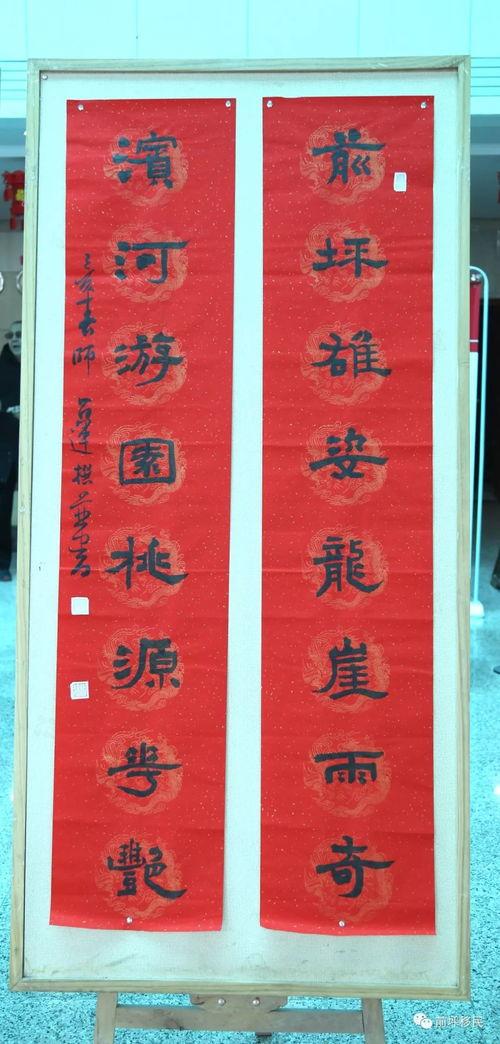 前坪雄姿龍崖雨奇
濱河游園桃源華艷
己亥春
撰并書
前坪移民